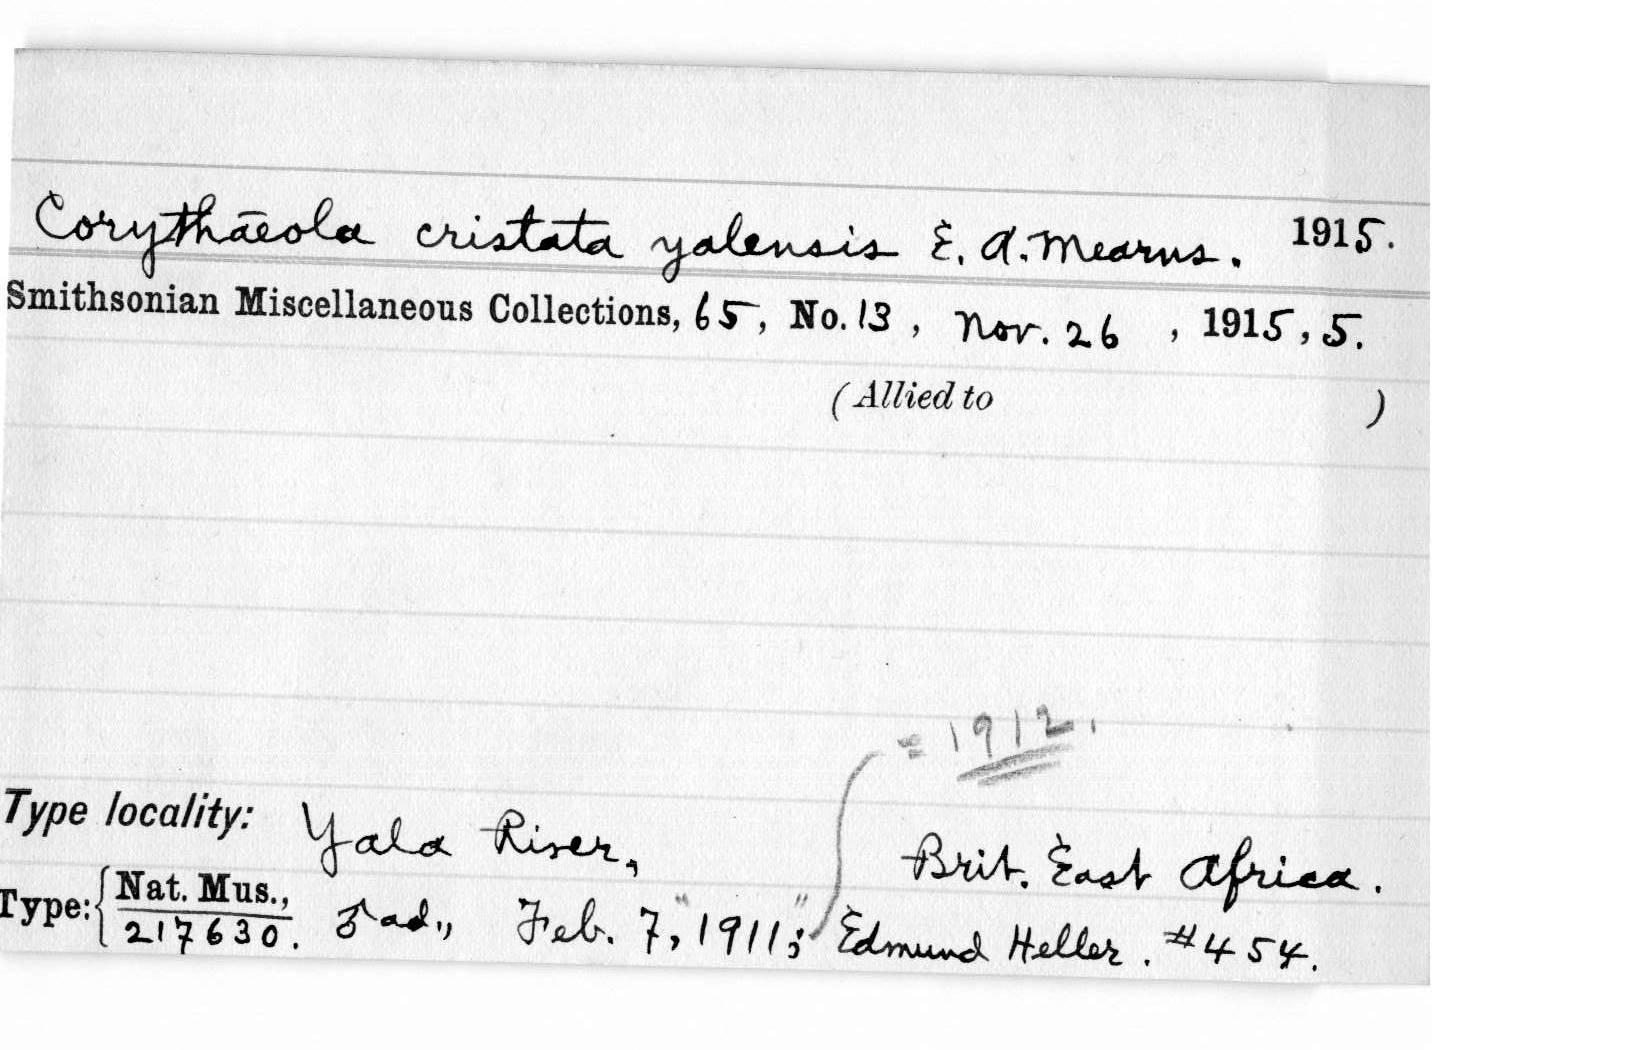 Corythāeola cristata yalensis E. A. Mearns. 1915.
Smithsonian Miscellaneous Collections, 65, No. 13, Nov. 26, 1915, 5.
(Allied to )
= 1912.
Type locality: Yala River, Brit. East Africa.
Type: { Nat. Mus., 217630. ♂ ad., Feb. 7, "1911"; Edmund Heller. #454.